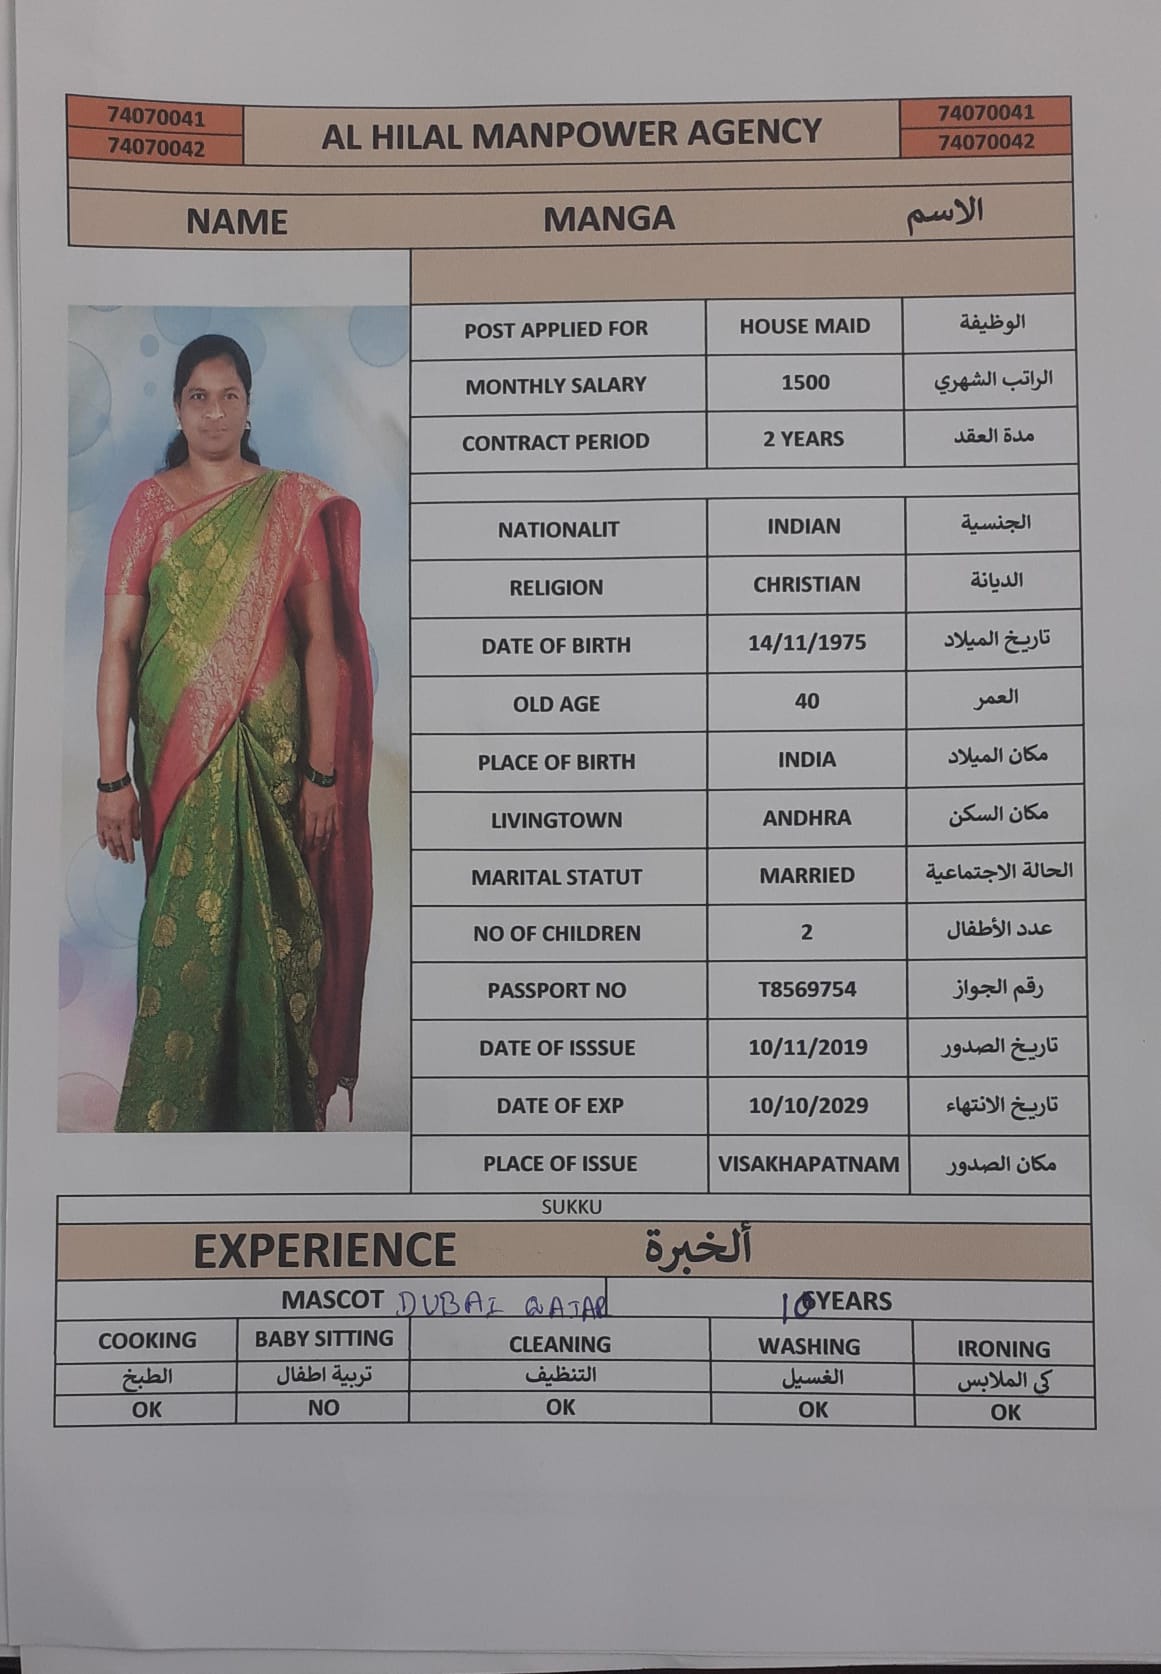 74070041 AL HILAL MANPOWER AGENCY 74070041
74070042 74070042
NAME MANGA الاسم
POST APPLIED FOR HOUSE MAID الوظيفة
MONTHLY SALARY 1500 الراتب الشهري
CONTRACT PERIOD 2 YEARS مدة العقد
NATIONALIT INDIAN الجنسية
RELIGION CHRISTIAN الديانة
DATE OF BIRTH 14/11/1975 تاريخ الميلاد
OLD AGE 40 العمر
PLACE OF BIRTH INDIA مكان الميلاد
LIVINGTOWN ANDHRA مكان السكن
MARITAL STATUT MARRIED الحالة الاجتماعية
NO OF CHILDREN 2 عدد الأطفال
PASSPORT NO T8569754 رقم الجواز
DATE OF ISSSUE 10/11/2019 تاريخ الصدور
DATE OF EXP 10/10/2029 تاريخ الانتهاء
PLACE OF ISSUE VISAKHAPATNAM مكان الصدور
SUKKU
EXPERIENCE ألخبرة
MASCOT DUBAI QATAR YEARS
COOKING BABY SITTING CLEANING WASHING IRONING
الطبخ تربية اطفال التنظيف الغسيل كى الملابس
OK NO OK OK OK